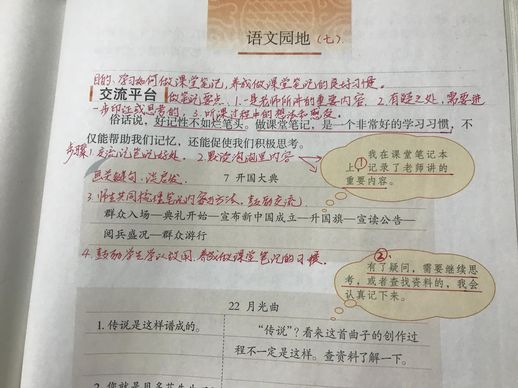 语文园地(七)
目的、学习如何做课堂笔记,养成做课堂笔记的良好习惯。
交流平台 做笔记要点,1.一是老师所讲的重要内容,2.有疑之处,需要进
一步印证或思考的,3.听课过程中的想法和感受。
俗话说,好记性不如烂笔头。做课堂笔记,是一个非常好的学习习惯,不
仅能帮助我们记忆,还能促使我们积极思考。
步骤1.交流记笔记好处 2.默读泡泡里内容
我在课堂笔记本
上①记录了老师讲的
重要内容。
7 开国大典
3.师生共同梳理笔记内容与方法,鼓励交流
群众入场—典礼开始—宣布新中国成立—升国旗—宣读公告—
阅兵盛况—群众游行
4.鼓励学生学以致用,养成做课堂笔记的习惯。
②
有了疑问,需要继续思
考,或者查找资料的,我会
认真记下来。
22 月光曲
1.传说是这样谱成的。
“传说”?看来这首曲子的创作过
程不一定是这样。查资料了解一下。